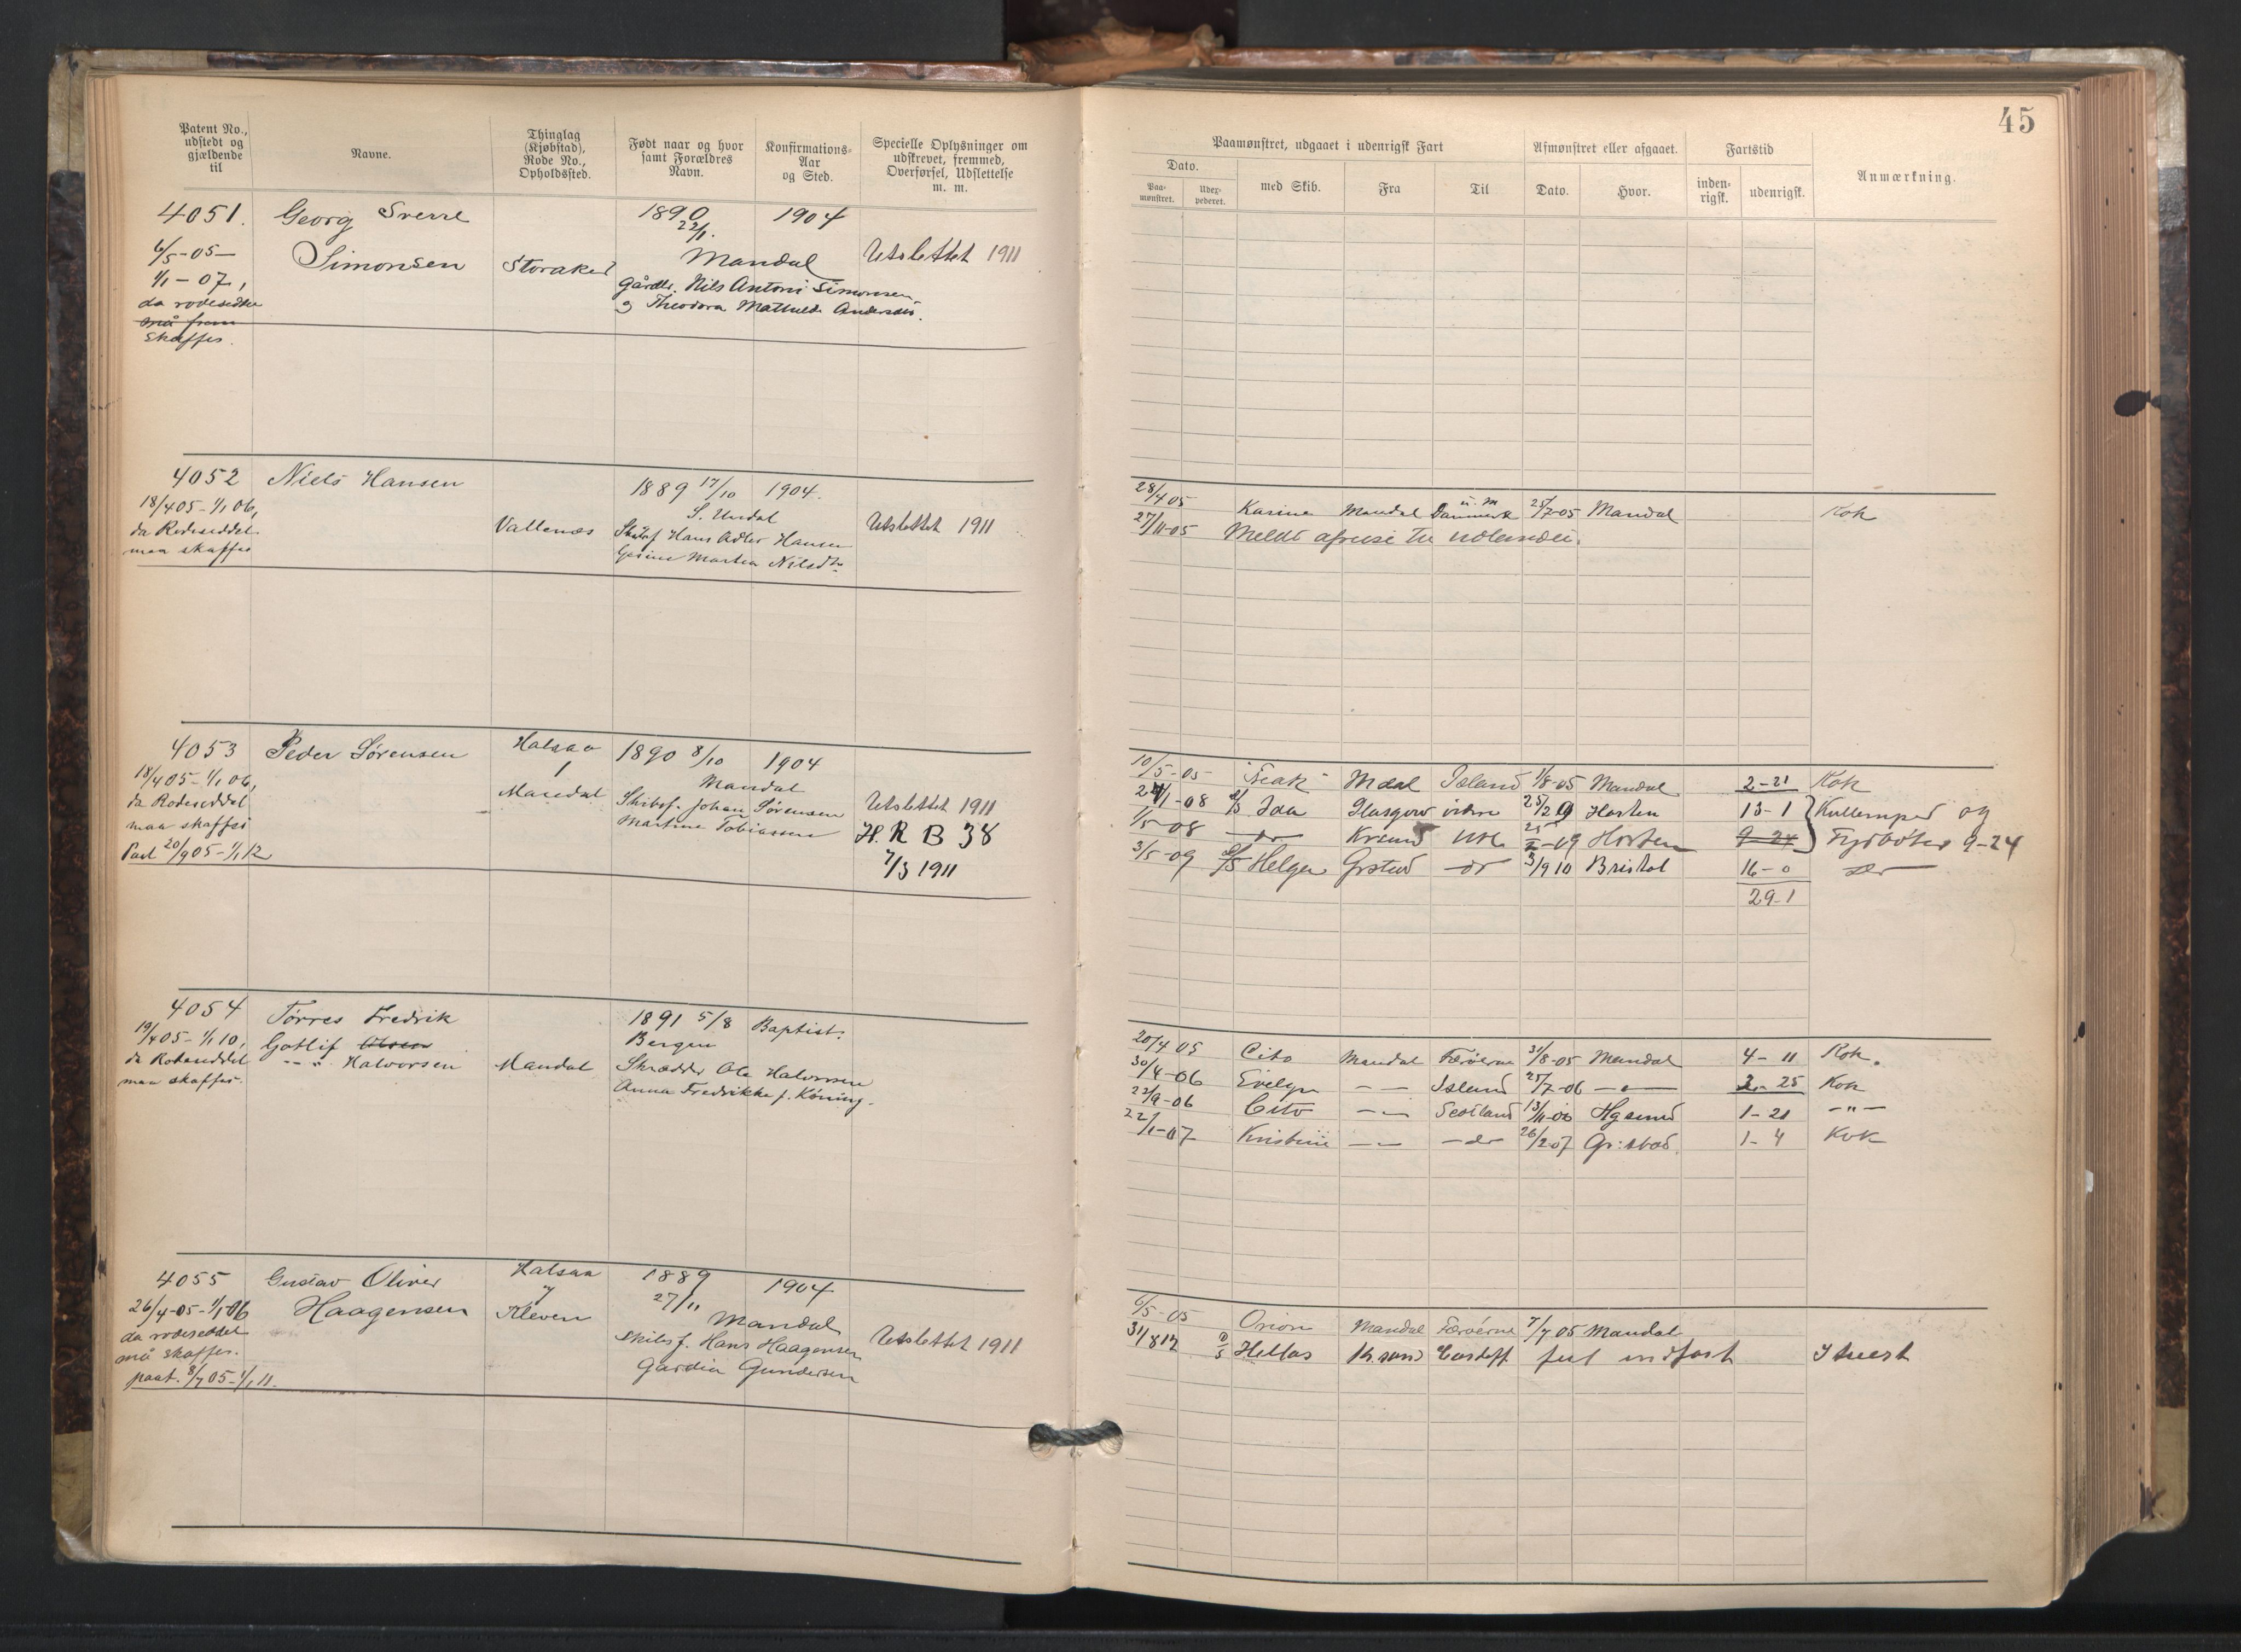 45
Patent No., udstedt og gjældende til
Navne.
Thinglag (Kjøbstad), Rode No., Opholdssted.
Født naar og hvor samt Forældres Navn.
Konfirmations-Aar og Sted.
Specielle Oplysninger om udskrevet, fremmed, Overførsel, Udslettelse m. m.
Paamønstret, udgaaet i udenrigsk Fart
Afmønstret eller afgaaet.
Fartstid
Anmærkning.
Dato.
Paa-mønstret.
Uder-pederet.
med Skib.
Fra
Til
Dato.
Hvor.
inden-rigsk.
udenrigsk.
4051. Georg Sverre 1890 22/1. 1904
6/5-05- Simonsen Storaker Mandal Utslettet 1911
1/1-07, Gårdbr. Nils Antoni Simonsen
da rodeseddel og Theodora Mathilde Andersdr.
må frem
skaffes.
4052 Niels Hansen 1889 17/10 1904.
18/4 05-1/1 06, S. Undal
da Rodeseddel Vallenæs Skibsf Hans Adler Hansen Utslettet 1911
maa skaffes Gesine Martea Nilsdtr
28/4 05 Karine Mandal Danmark 25/7-05 Mandal Kok
27/11-05 Meldt afreise til udlandet.
4053 Peder Sørensen Halsaa 1890 8/10 1904
18/4 05-1/1 06, / Mandal
da Rodeseddel Mandal Skibsf. Johan Sørensen Utslettet 1911
maa skaffes Martine Tobiassen H. R B 38
Pat 20/9 05-1/1 12 7/3 1911
10/5-05 Mdal Island 1/8-05 Mandal 2-21 Kok
24/1-08 Glasgow 25/2 9 Horten 13-1 Kullemper og
1/5-08 do Krsund 25/2-09 Horten 9-24 Fyrbøter 9-24
3/5-09 D/S Helga Grstad do 3/9 10 Bristol 16-0 do
29-1
4054 Tørres Fredrik 1891 5/8 Baptist.
19/4 05-1/1 10, Gotlif Olsen Bergen
da Rodeseddel -"- Halvorsen Mandal Skrædder Ole Halvorsen
maa skaffes. Anna Fredrikke f. Köning.
20/4 05 Cito Mandal Færøerne 31/8-05 Mandal 4-11 Kok.
30/4-06 Evelyn Island 25/7-06 2-25 Kok
22/9-06 Cito Scotland 13/11-06 Hgsund 1-21 -"-
22/1-07 Kristine do 26/2 07 Gr:stad. 1-4 Kok
4055 Gustav Oliver Halsaa 1889 1904
26/4-05-1/1 06 Haagensen Kleven 27/11 Mandal
da rodeseddel Skibsf. Hans Haagensen Utslettet 1911
må skaffes. Gardia Gundersen
paat. 8/7 05-1/1 11.
6/5-05 Orion Mandal Færøerne 7/7 05 Mandal
31/8 12 D/S Hellas Krsand Cardiff fast Stuert